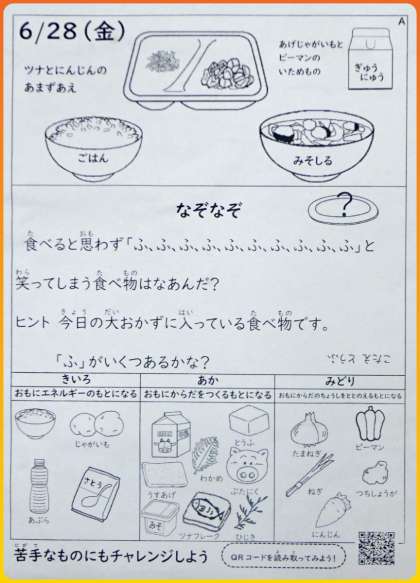 6/28(金)
A
ツナとにんじんの
あまずあえ
あげじゃがいもと
ピーマンの
いためもの
ぎゅう
にゅう
ごはん
みそしる
なぞなぞ
?
食べると思わず「ふ、ふ、ふ、ふ、ふ、ふ、ふ、ふ、ふ、ふ」と
笑ってしまう食べ物はなあんだ?
ヒント 今日の大おかずに入っている食べ物です。
「ふ」がいくつあるかな?
こたえ とうふ
きいろ
おもにエネルギーのもとになる
あか
おもにからだをつくるもとになる
みどり
おもにからだのちょうしをととのえるもとになる
じゃがいも
あぶら
さとう
とうふ
わかめ
うすあげ
ぶたにく
みそ
ツナフレーク
ひじき
たまねぎ
ピーマン
ねぎ
つちしょうが
にんじん
苦手なものにもチャレンジしよう
QRコードを読み取ってみよう!